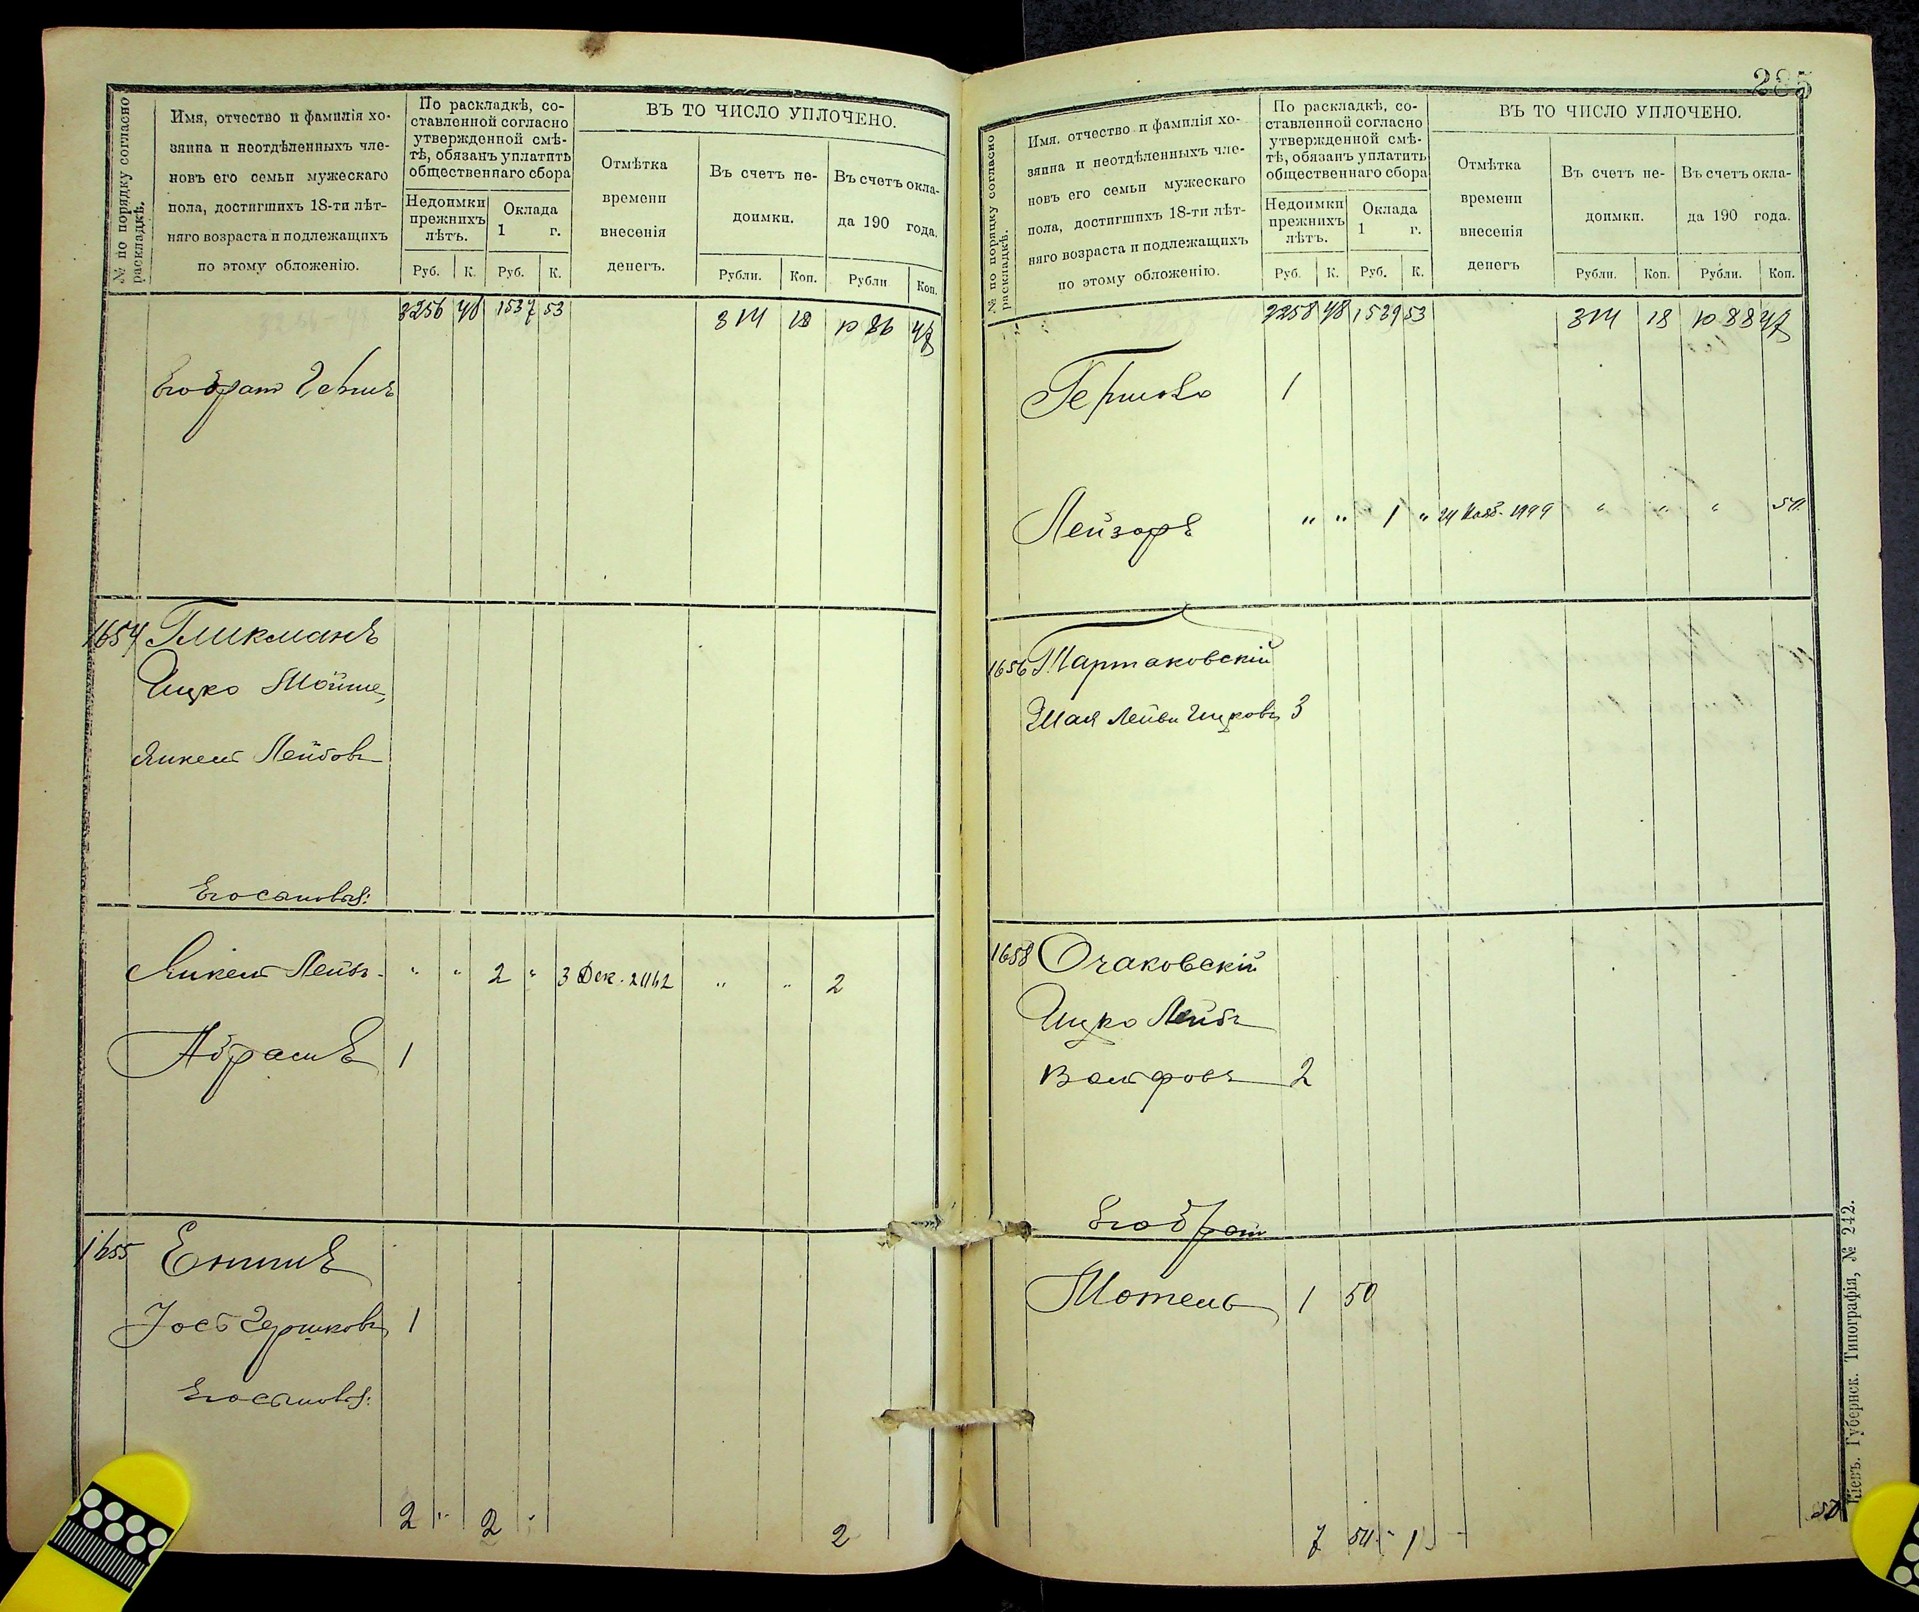 № по порядку согласно раскладкѣ.
Имя, отчество и фамилія хо-
зяина и неотдѣленныхъ чле-
новъ его семьи мужескаго
пола, достигшихъ 18-ти лѣт-
няго возраста и подлежащихъ
по этому обложенію.
По раскладкѣ, со-
ставленной согласно
утвержденной смѣ-
тѣ, обязанъ уплатить
общественнаго сбора
Недоимки прежнихъ лѣтъ.
Оклада 1 г.
Руб. К. Руб. К.
ВЪ ТО ЧИСЛО УПЛОЧЕНО.
Отмѣтка
времени
внесенія
денегъ.
Въ счетъ не-
доимки.
Въ счетъ окла-
да 190 года.
Рубли. Коп. Рубли Коп.
3256 48 1537 53 314 18 1086 47
Его братъ
1654 Гликманъ
Ицко Мойше,
Янкель Лейбовъ
Его сыновья:
Янкель Лейбъ - " " 2 " 3 Дек. 21162 " " 2
Абрамъ 1
1655 Еншинъ
Іось Гершковъ 1
Его сыновья:
2 " 2 " 2
285
№ по порядку согласно раскладкѣ.
Имя, отчество и фамилія хо-
зяина и неотдѣленныхъ чле-
новъ его семьи мужескаго
пола, достигшихъ 18-ти лѣт-
няго возраста и подлежащихъ
по этому обложенію.
По раскладкѣ, со-
ставленной согласно
утвержденной смѣ-
тѣ, обязанъ уплатить
общественнаго сбора
Недоимки прежнихъ лѣтъ.
Оклада 1 г.
Руб. К. Руб. К.
ВЪ ТО ЧИСЛО УПЛОЧЕНО.
Отмѣтка
времени
внесенія
денегъ
Въ счетъ не-
доимки.
Въ счетъ окла-
да 190 года.
Рубли. Коп. Рубли. Коп.
3258 48 1539 53 314 18 1088 47
Гершко 1
Лейзоръ " " 1 " 24 Нояб. " " " 50
1656 Тартаковскій
Шая Лейби Ицковъ 3
1658 Очаковскій
Ицко Лейбъ
Волфовъ 2
Его братъ
Мотель 1 50
7 50 1 50
Кіевъ. Губернск. Типографія, № 242.